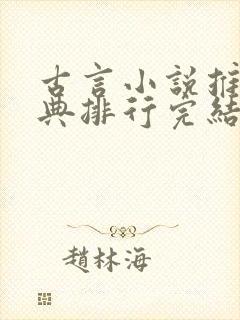 古言小説推
典排行完結
趙林海